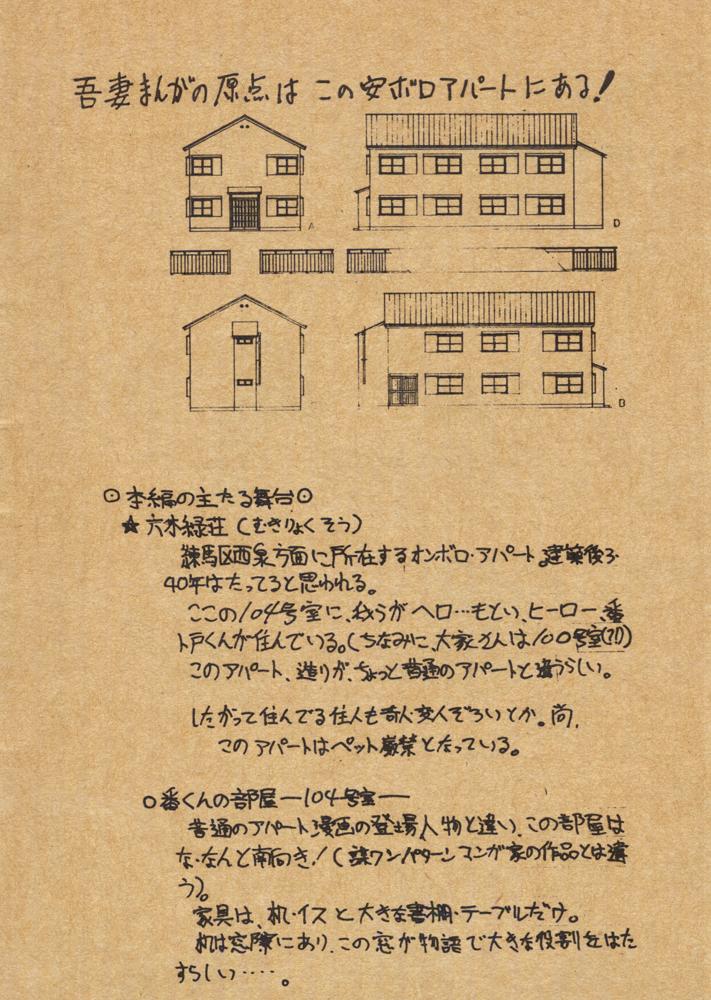 吾妻まんがの原点は この安ボロアパートにある!
A
D
B
⊙本編の主たる舞台⊙
★六木緑荘(むきりょくそう)
練馬区西泉方面に所在するオンボロ・アパート。建築後35
40年はたってると思われる。
ここの104号室に、我らがヘロ…もとい、ヒーロー、番
戸くんが住んでいる。(ちなみに、大家さんは100号室(?!))
このアパート、造りが、ちょっと普通のアパートと違うらしい。
したがって住んでる住人も奇人変人ぞろいとか。尚、
このアパートはペット厳禁となっている。
○番くんの部屋―104号室―
普通のアパート漫画の登場人物と違い、この部屋は
な・なんと南向き!(諸ワンパターンマンガ家の作品とは違
う)。
家具は、机・イスと大きな書棚・テーブルだけ。
机は窓際にあり、この窓が物語で大きな役割をはた
すらしい‥‥。